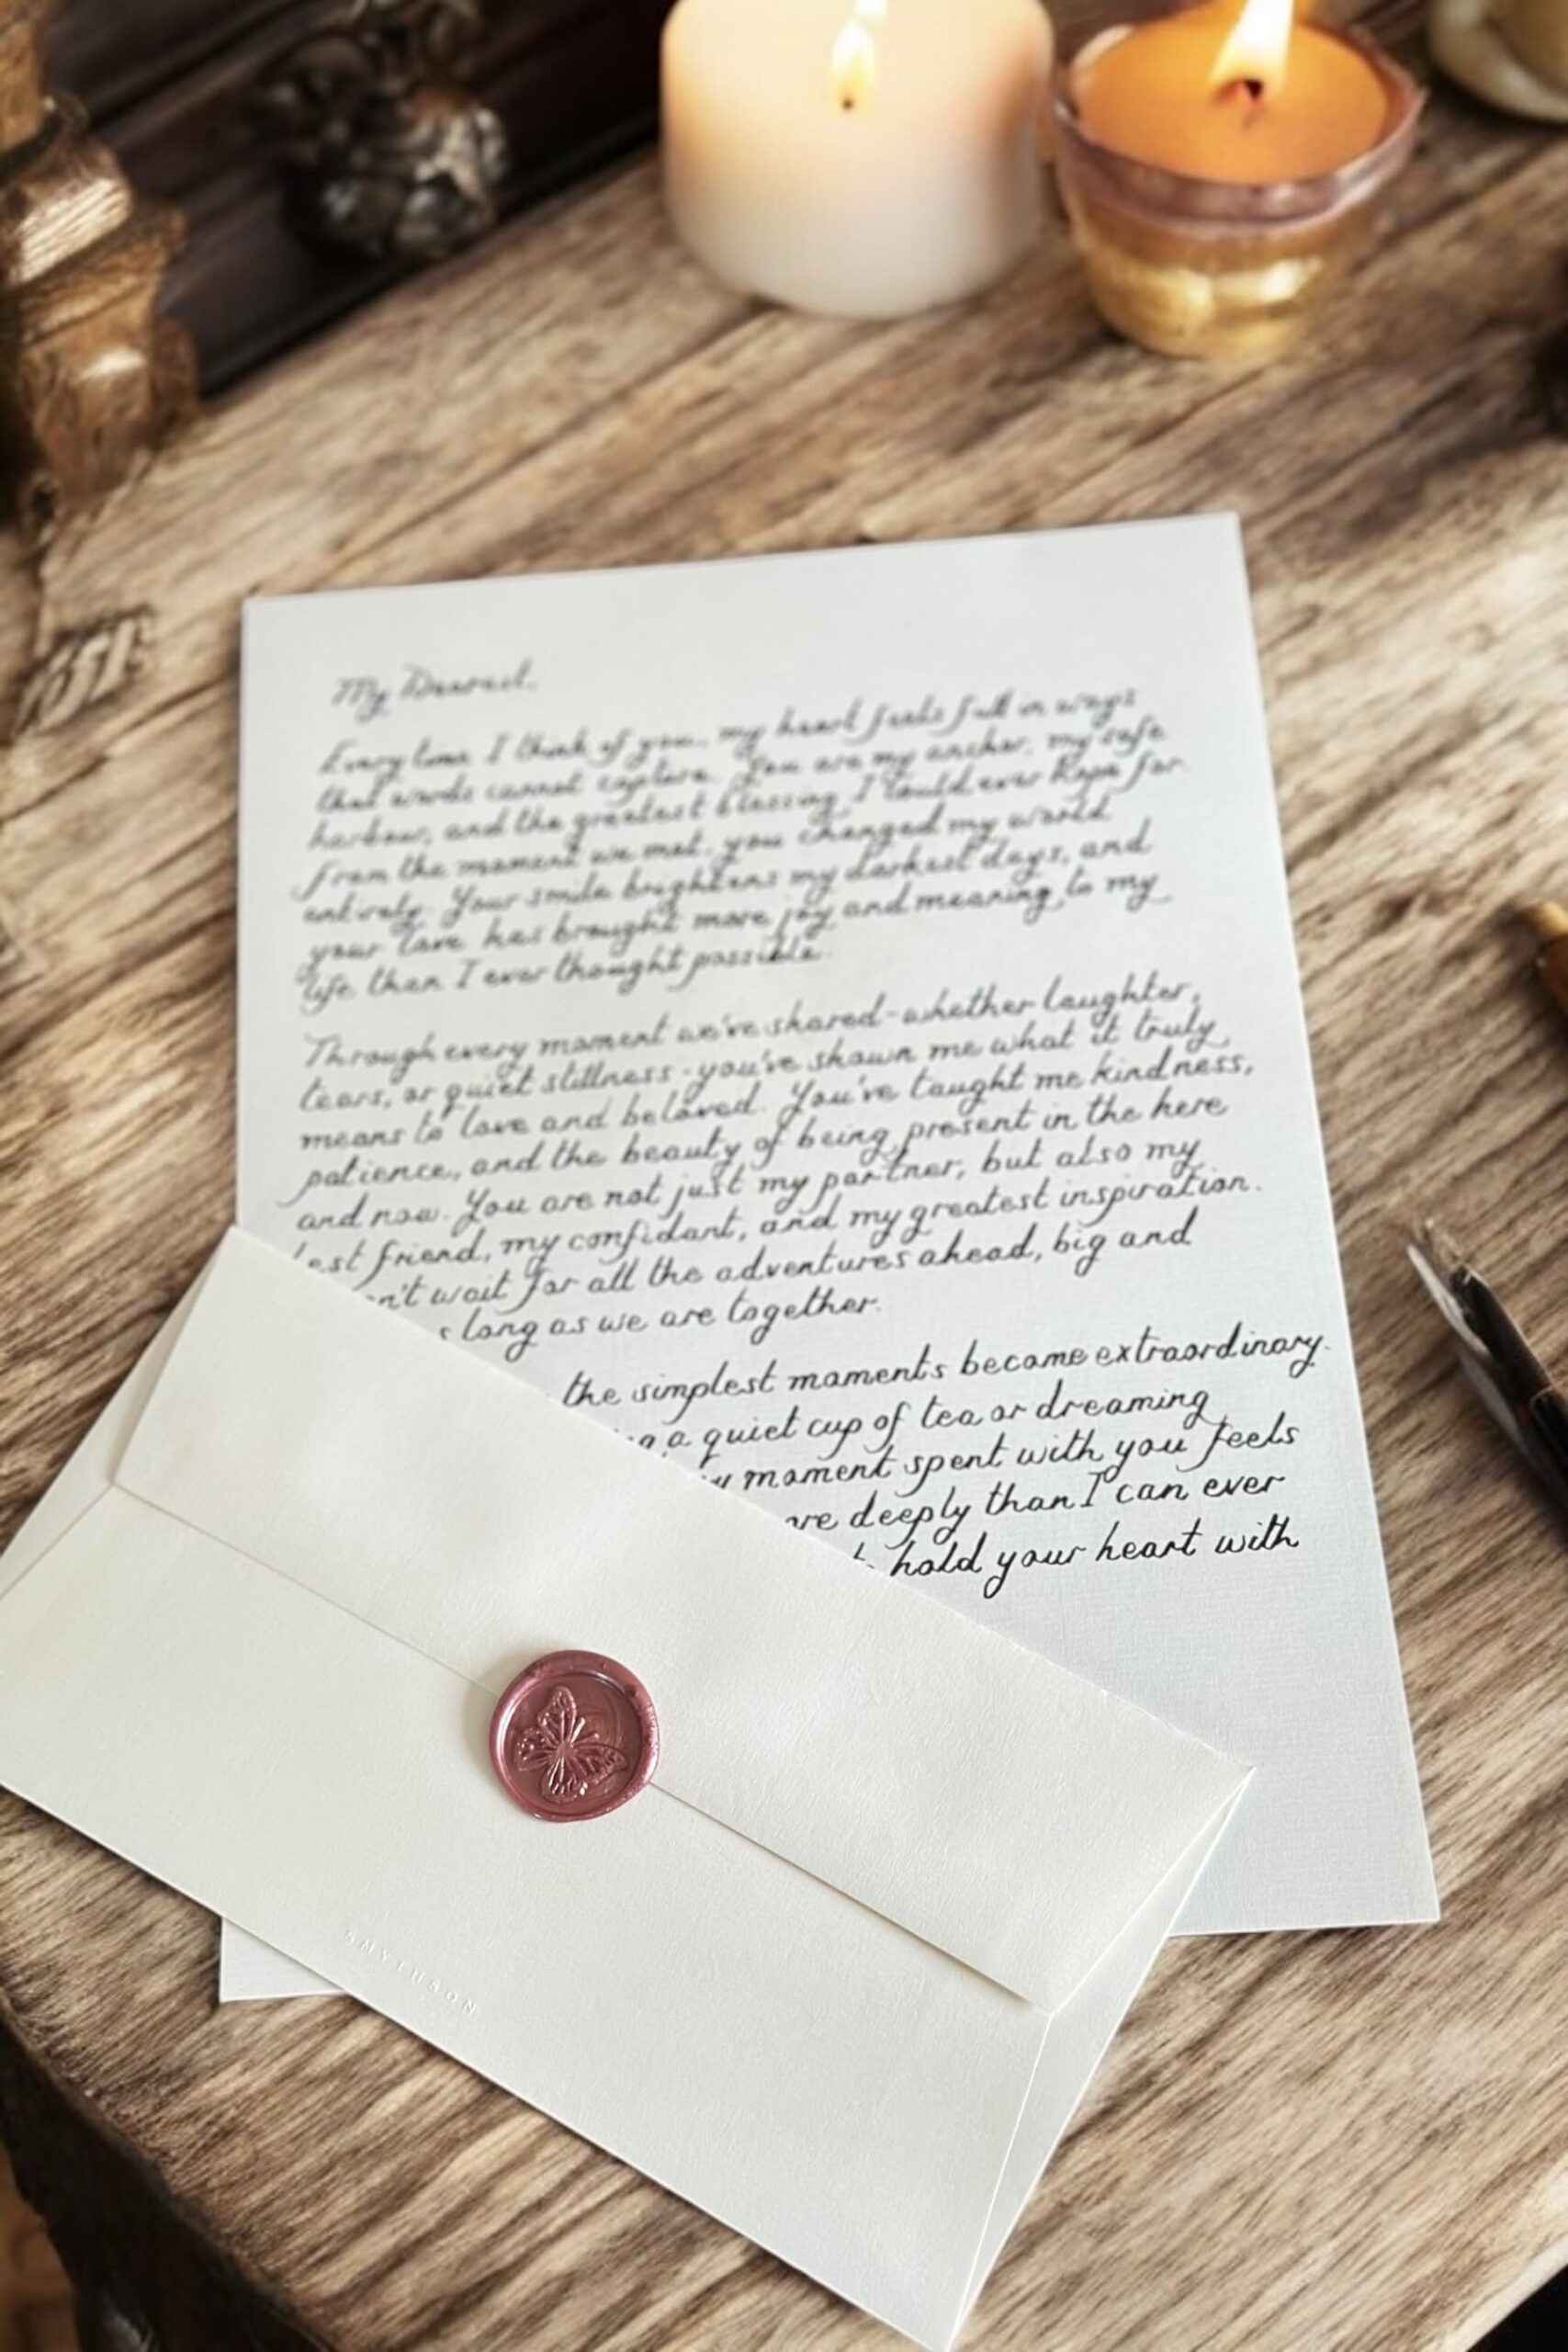 My Dearest,
Every time I think of you, my heart feels full in ways
that words cannot capture. You are my anchor, my safe
harbour, and the greatest blessing I could ever hope for.
From the moment we met, you changed my world
entirely. Your smile brightens my darkest days, and
your love has brought more joy and meaning to my
life than I ever thought possible.
Through every moment we've shared-whether laughter,
tears, or quiet stillness-you've shown me what it truly
means to love and be loved. You've taught me kindness,
patience, and the beauty of being present in the here
and now. You are not just my partner, but also my
est friend, my confidant, and my greatest inspiration.
n't wait for all the adventures ahead, big and
s long as we are together.
the simplest moments become extraordinary.
a quiet cup of tea or dreaming
moment spent with you feels
ore deeply than I can ever
hold your heart with
SMYTHSON